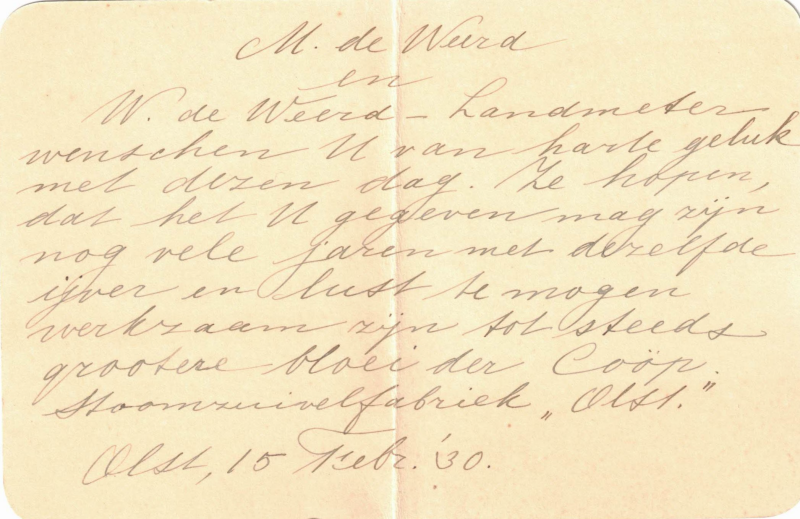 M. de Weerd
en
W. de Weerd - Landmeter
wenschen U van harte geluk
met dezen dag. Ze hopen,
dat het U gegeven mag zijn
nog vele jaren met dezelfde
ijver en lust te mogen
werkzaam zijn tot steeds
grootere bloei der Coöp.
Stoomzuivelfabriek „Olst.”
Olst, 15 Febr. '30.